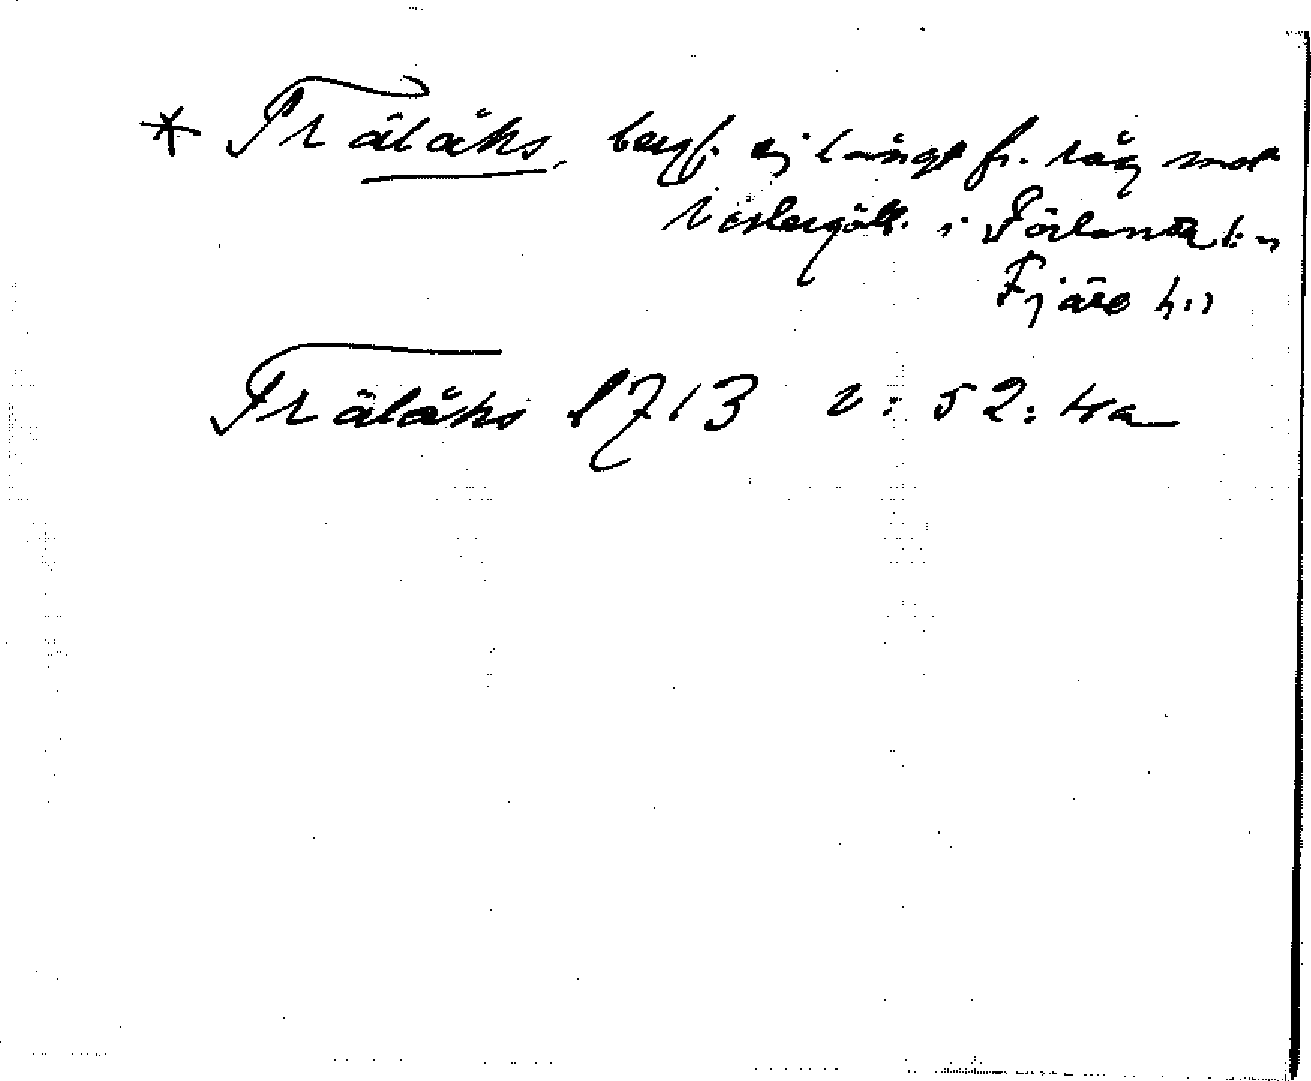 * Trälåks, bergf. ej långt fr. råg mot
Västergötl. i Förlanda s:n
Fjäre h:d
Trälåks 1713 v: 52: 4a